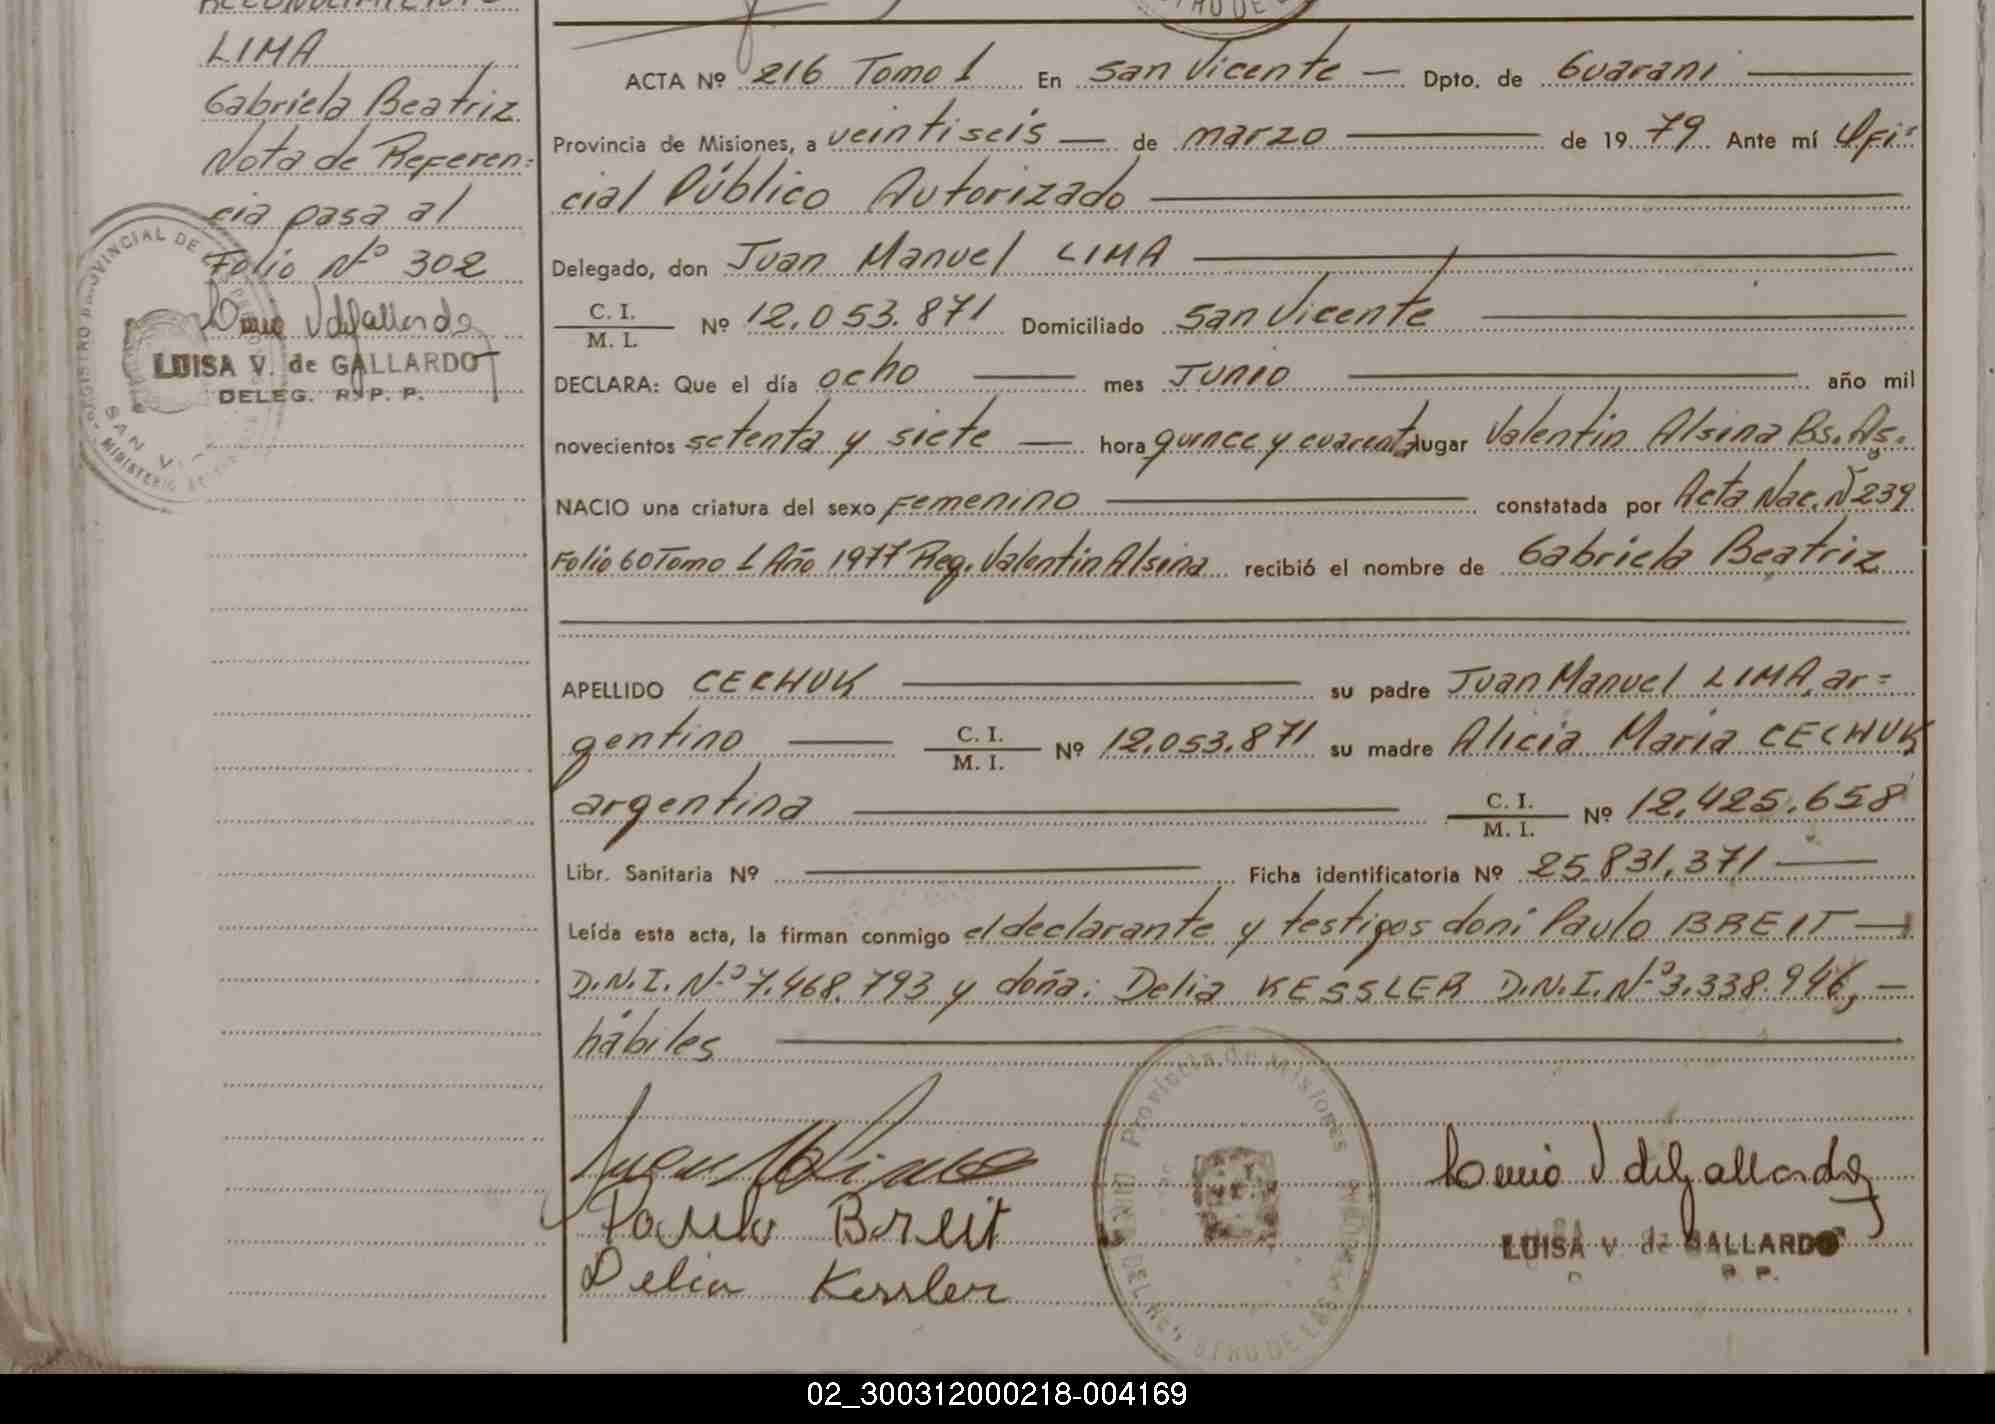 RECONOCIMIENTO
LIMA
Gabriela Beatriz
Nota de Referen=
cia pasa al
Folio Nº 302
LUISA V. de GALLARDO
DELEG. R. P. P.
ACTA Nº 216 Tomo 1 En San Vicente — Dpto. de Guarani
Provincia de Misiones, a veintiseis — de marzo — de 1979 Ante mí Ofi=
cial Público Autorizado
Delegado, don Juan Manuel LIMA
C. I. / M. I. Nº 12.053.871 Domiciliado San Vicente
DECLARA: Que el día ocho — mes Junio — año mil
novecientos setenta y siete — hora quince y cuarenta lugar Valentin Alsina Bs. As.
NACIO una criatura del sexo Femenino — constatada por Acta Nac. Nº 239
Folio 60 Tomo 1 Año 1977 Reg. Valentin Alsina recibió el nombre de Gabriela Beatriz
APELLIDO CECHUK — su padre Juan Manuel LIMA, ar=
gentino — C. I. / M. I. Nº 12.053.871 su madre Alicia Maria CECHUK
argentina — C. I. / M. I. Nº 12.425.658
Libr. Sanitaria Nº — Ficha identificatoria Nº 25.831.371 —
Leída esta acta, la firman conmigo el declarante y testigos don: Paulo BREIT —
D.N.I. Nº 7.468.793 y doña: Delia KESSLER D.N.I. Nº 3.338.946, —
hábiles
Provincia de Misiones
Paulo Breit
Delia Kessler
LUISA V. de GALLARDO
02_300312000218-004169